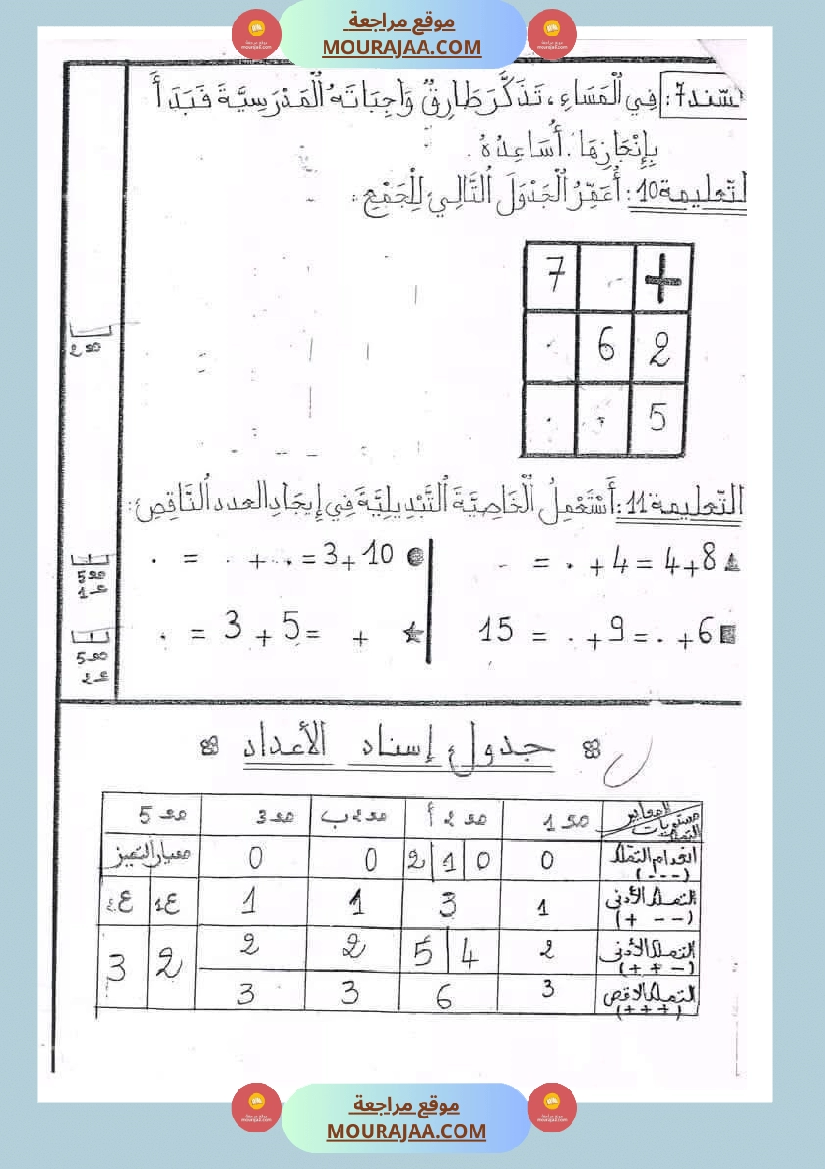 موقع مراجعة
MOURAJAA.COM
سند 7: فِي الْمَسَاءِ، تَذَكَّرَ طَارِقٌ وَاجِبَاتَهُ الْمَدْرَسِيَّةَ فَبَدَأَ
بِإِنْجَازِهَا. أُسَاعِدُهُ.
لتّعليمة 10: أُعَمِّرُ الْجَدْوَلَ التَّالِيَ لِلْجَمْعِ:
+ 7
2 6
5
مع 2
التّعليمة 11: أَسْتَعْمِلُ الْخَاصِيَّةَ التَّبْدِيلِيَّةَ فِي إِيجَادِ العدد النَّاقِصِ:
8+4 = 4+ . =
10+3 = . + . = .
6+ . = 9+ . = 15
+ = 5 + 3 = .
مع 5
ع 1
مع 5
ع 2
جدول إسناد الأعداد
المعايير مستويات التملك
مع 1
مع 2 أ
مع 2 ب
مع 3
مع 5
انعدام التملك (---) 0 0 1 2 0 0 معيار التميز
التملك الأدنى (+ - -) 1 3 1 1 ع1 ع2
التملك الأدنى (+ + -) 2 4 5 2 2 2 3
التملك الاقصى (+ + +) 3 6 3 3
موقع مراجعة
MOURAJAA.COM